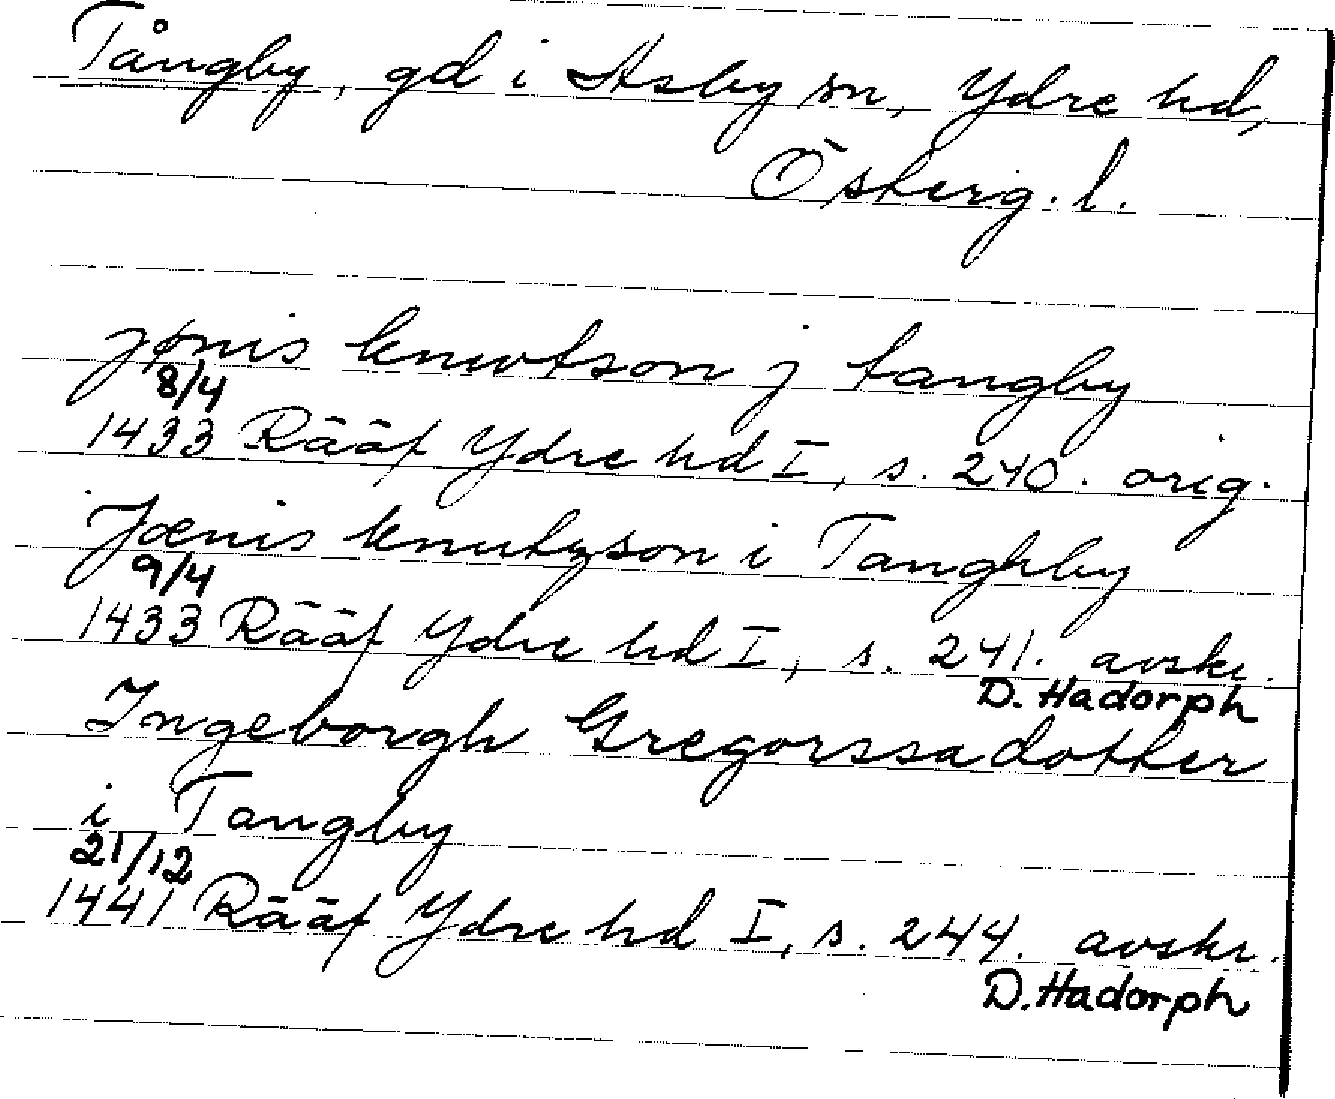 Tångby, gd i Asby sn, Ydre hd,
Österg. l.
jønis knwtson j tangby
8/4
1433 Rääf Ydre hd I, s. 240. orig.
Jønis knutzson i Tanghby
9/4
1433 Rääf Ydre hd I, s. 241. avskr.
D. Hadorph
Ingeborgh Gregorssadotter
i Tangby
21/12
1441 Rääf Ydre hd I, s. 244. avskr.
D. Hadorph